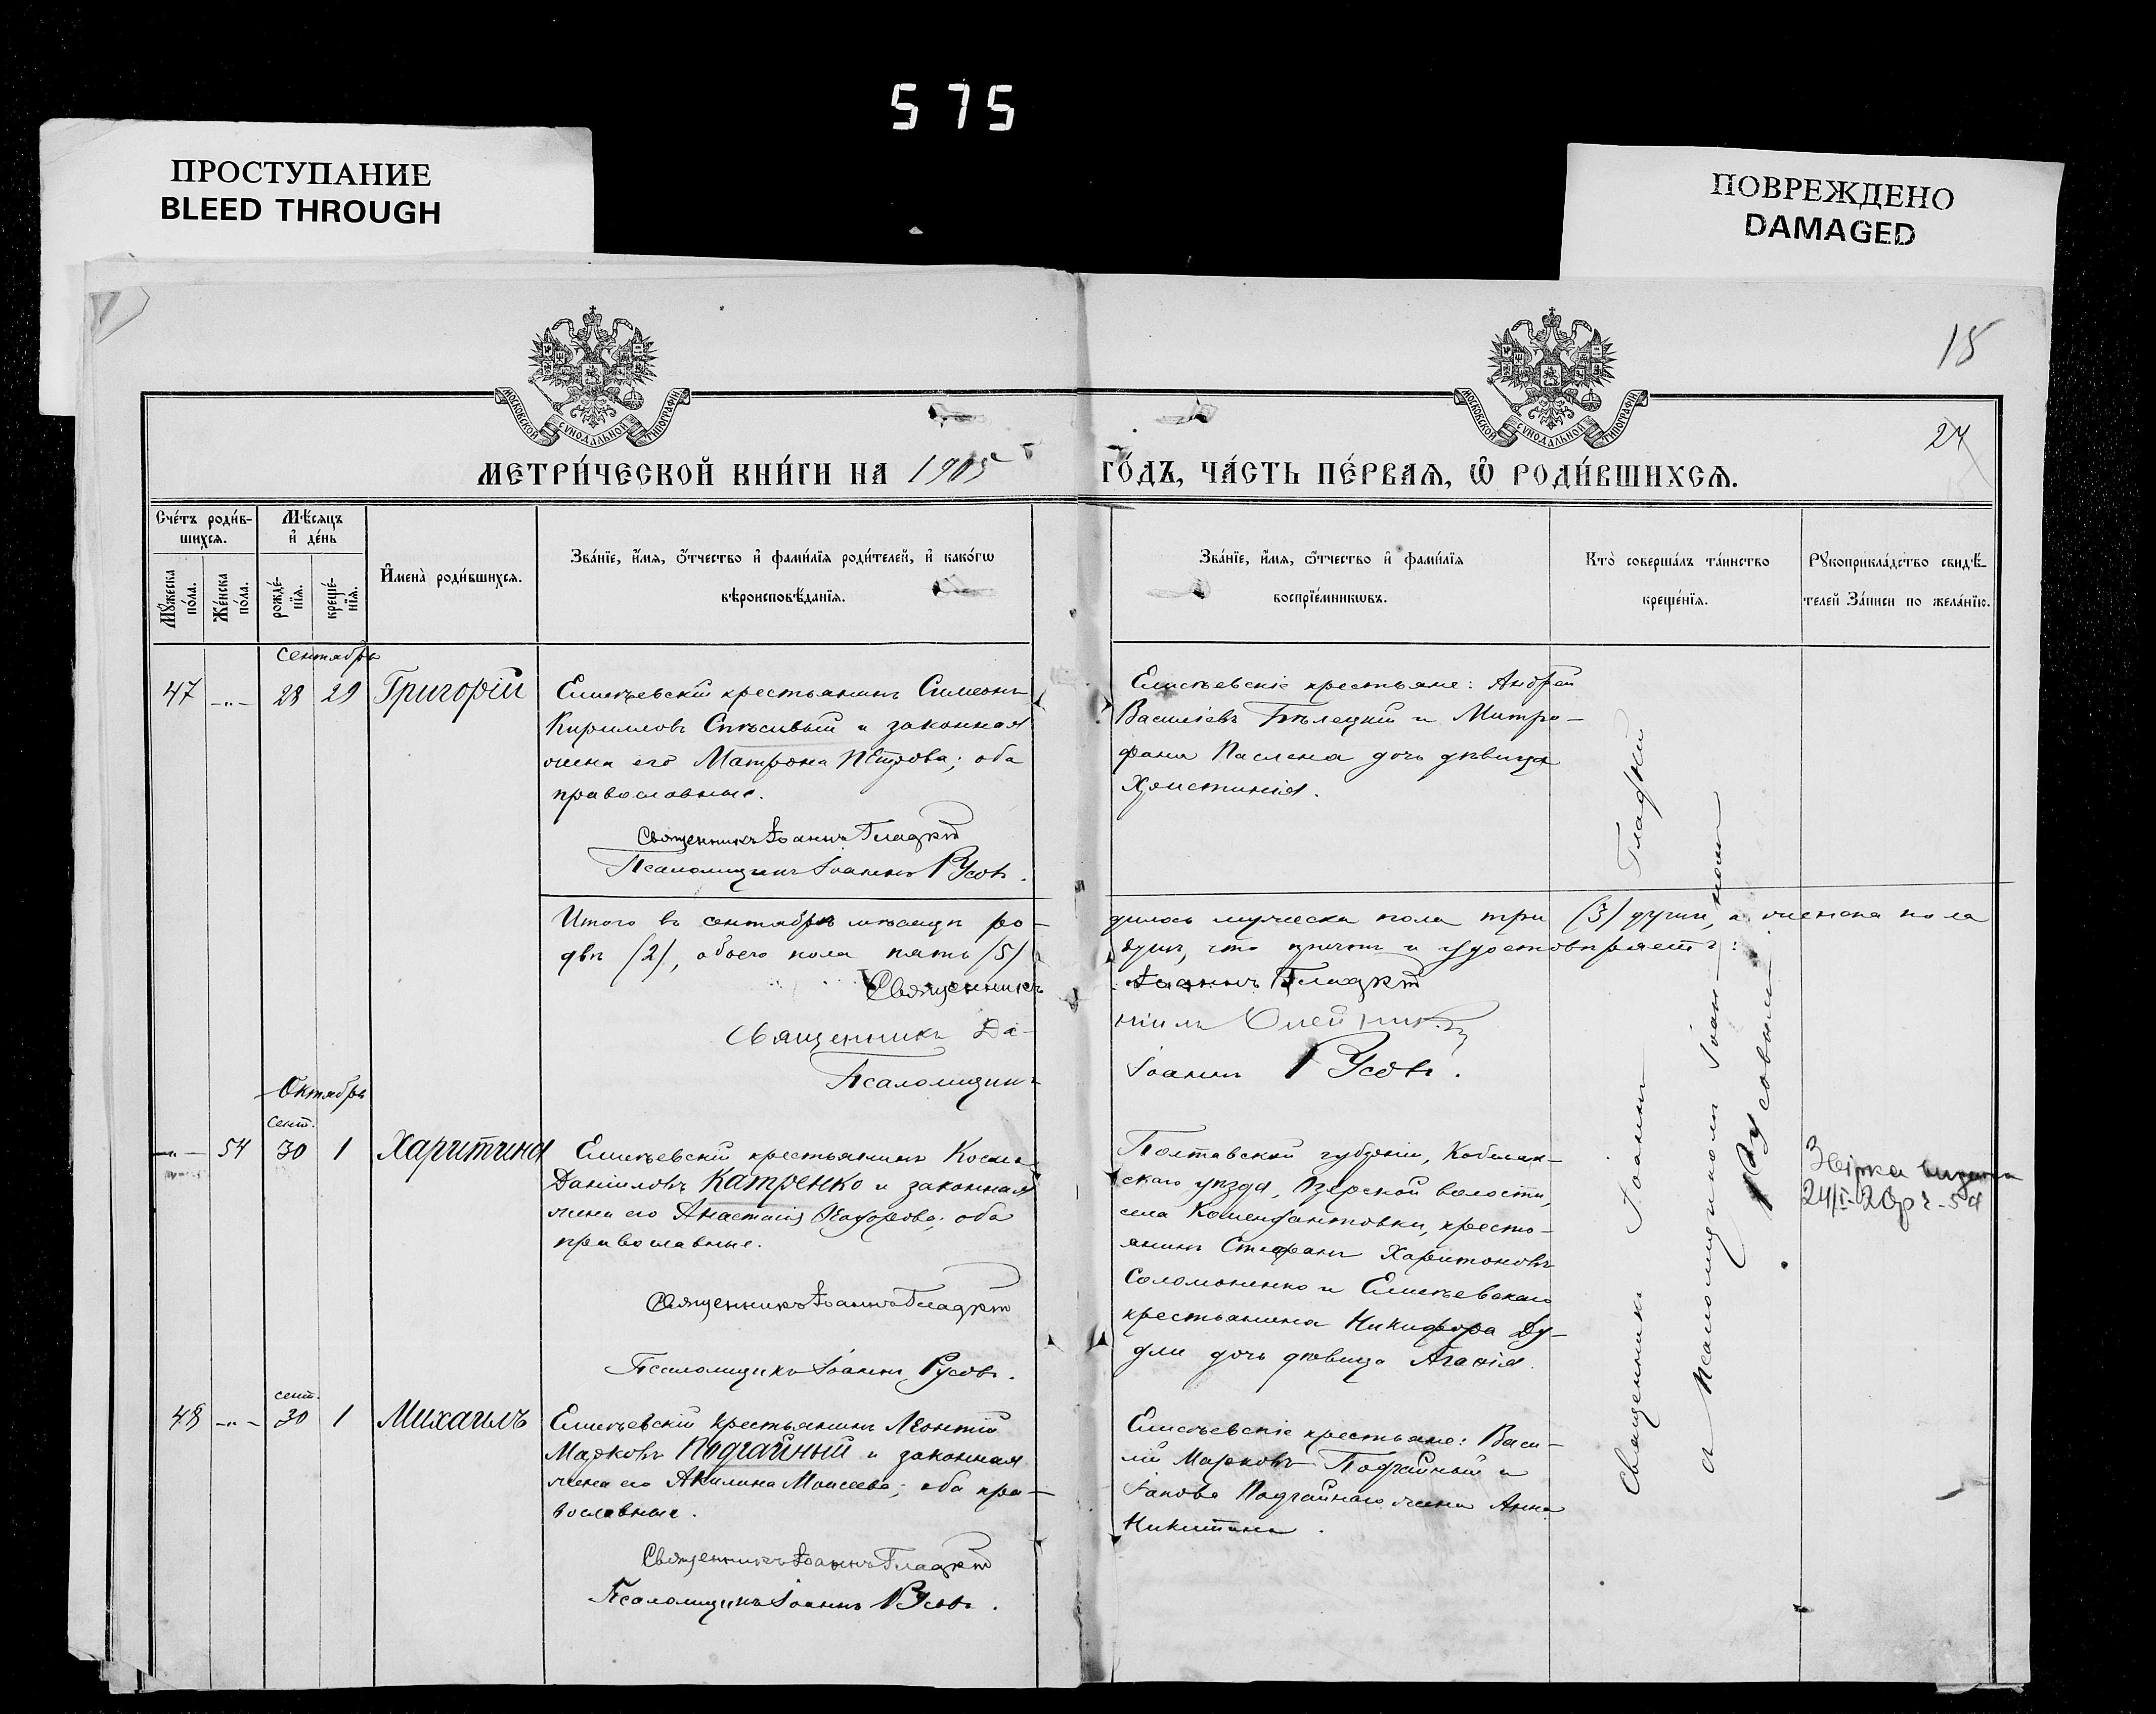 575
ПРОСТУПАНИЕ
BLEED THROUGH
ПОВРЕЖДЕНО
DAMAGED
15
24
МОСКОВСКОЙ СѴНОДАЛЬНОЙ ТИПОГРАФІИ
МОСКОВСКОЙ СѴНОДАЛЬНОЙ ТИПОГРАФІИ
МЕТРИ́ЧЕСКОЙ КНИ́ГИ НА 1905 ГО́ДЪ, ЧА́СТЬ ПЕ́РВАѦ, Ѽ РОДИ́ВШИХСѦ.
Сче́тъ роди́в-
шихсѧ.
Мѣ́сѧцъ
и҆ де́нь
Мꙋ́жеска по́ла.
Же́нска по́ла.
рожде́-
нїѧ.
креще́-
нїѧ.
И҆мена̀ роди́вшихсѧ.
Зва́нїе, и҆́мѧ, ѻ҆́тчество и҆ фами́лїѧ роди́телей, и҆ како́гѡ
вѣроисповѣ́данїѧ.
Зва́нїе, и҆́мѧ, ѻ҆́тчество и҆ фами́лїѧ
воспрїе́мникѡвъ.
Кто̀ соверша́лъ та́инство
креще́нїѧ.
Рꙋкоприкла́дство свидѣ́-
телей за́писи по жела́нїю.
Сентябрь
47 -„- 28 29 Григорій
Елисѣевскій крестьянинъ Симеонъ
Кирилловъ Спѣсивый и законная
жена его Матрона Петрова; оба
православные.
Священникъ Іоаннъ Гладкій
Псаломщикъ Іоаннъ Русовъ.
Елисѣевскіе крестьяне: Андрей
Василіевъ Бѣлецкій и Митро-
фана Паслена дочь дѣвица
Христинія.
Итого въ сентябрѣ мѣсяцѣ ро-
дилось мужеска пола три (3) души, а женска пола
двѣ (2), обоего пола пять (5)
душъ, что причтъ и удостовѣряетъ:
Священникъ Іоаннъ Гладкій
Священникъ Да-
ніилъ Олейник
Псаломщикъ
Іоаннъ Русовъ.
Октябрь
сент.
-„- 54 30 1 Харитина
Елисѣевскій крестьянинъ Косма
Даніиловъ Катренко и законная
жена его Анастасія Ѳеодорова; оба
православные.
Священникъ Іоаннъ Гладкій
Псаломщикъ Іоаннъ Русовъ.
Полтавской губерніи, Кобеляк-
скаго уѣзда, Озерской волости,
села Комендантовки, кресть-
янинъ Стефанъ Харитоновъ
Соломоненко и Елисѣевскаго
крестьянина Никифора Ду-
дли дочь дѣвица Агафія.
24/I-20р-54
сент.
48 -„- 30 1 Михаилъ
Елисѣевскій крестьянинъ Леонтій
Марковъ Подгайный и законная
жена его Акилина Моисеева; оба пра-
вославные.
Священникъ Іоаннъ Гладкій
Псаломщикъ Іоаннъ Русовъ.
Елисѣевскіе крестьяне: Васи-
лій Марковъ Подгайный и
Іакова Подгайнаго жена Анна
Никитина.
Священникъ Іоаннъ Гладкій
съ псаломщикомъ Іоан-
номъ
Русовымъ.